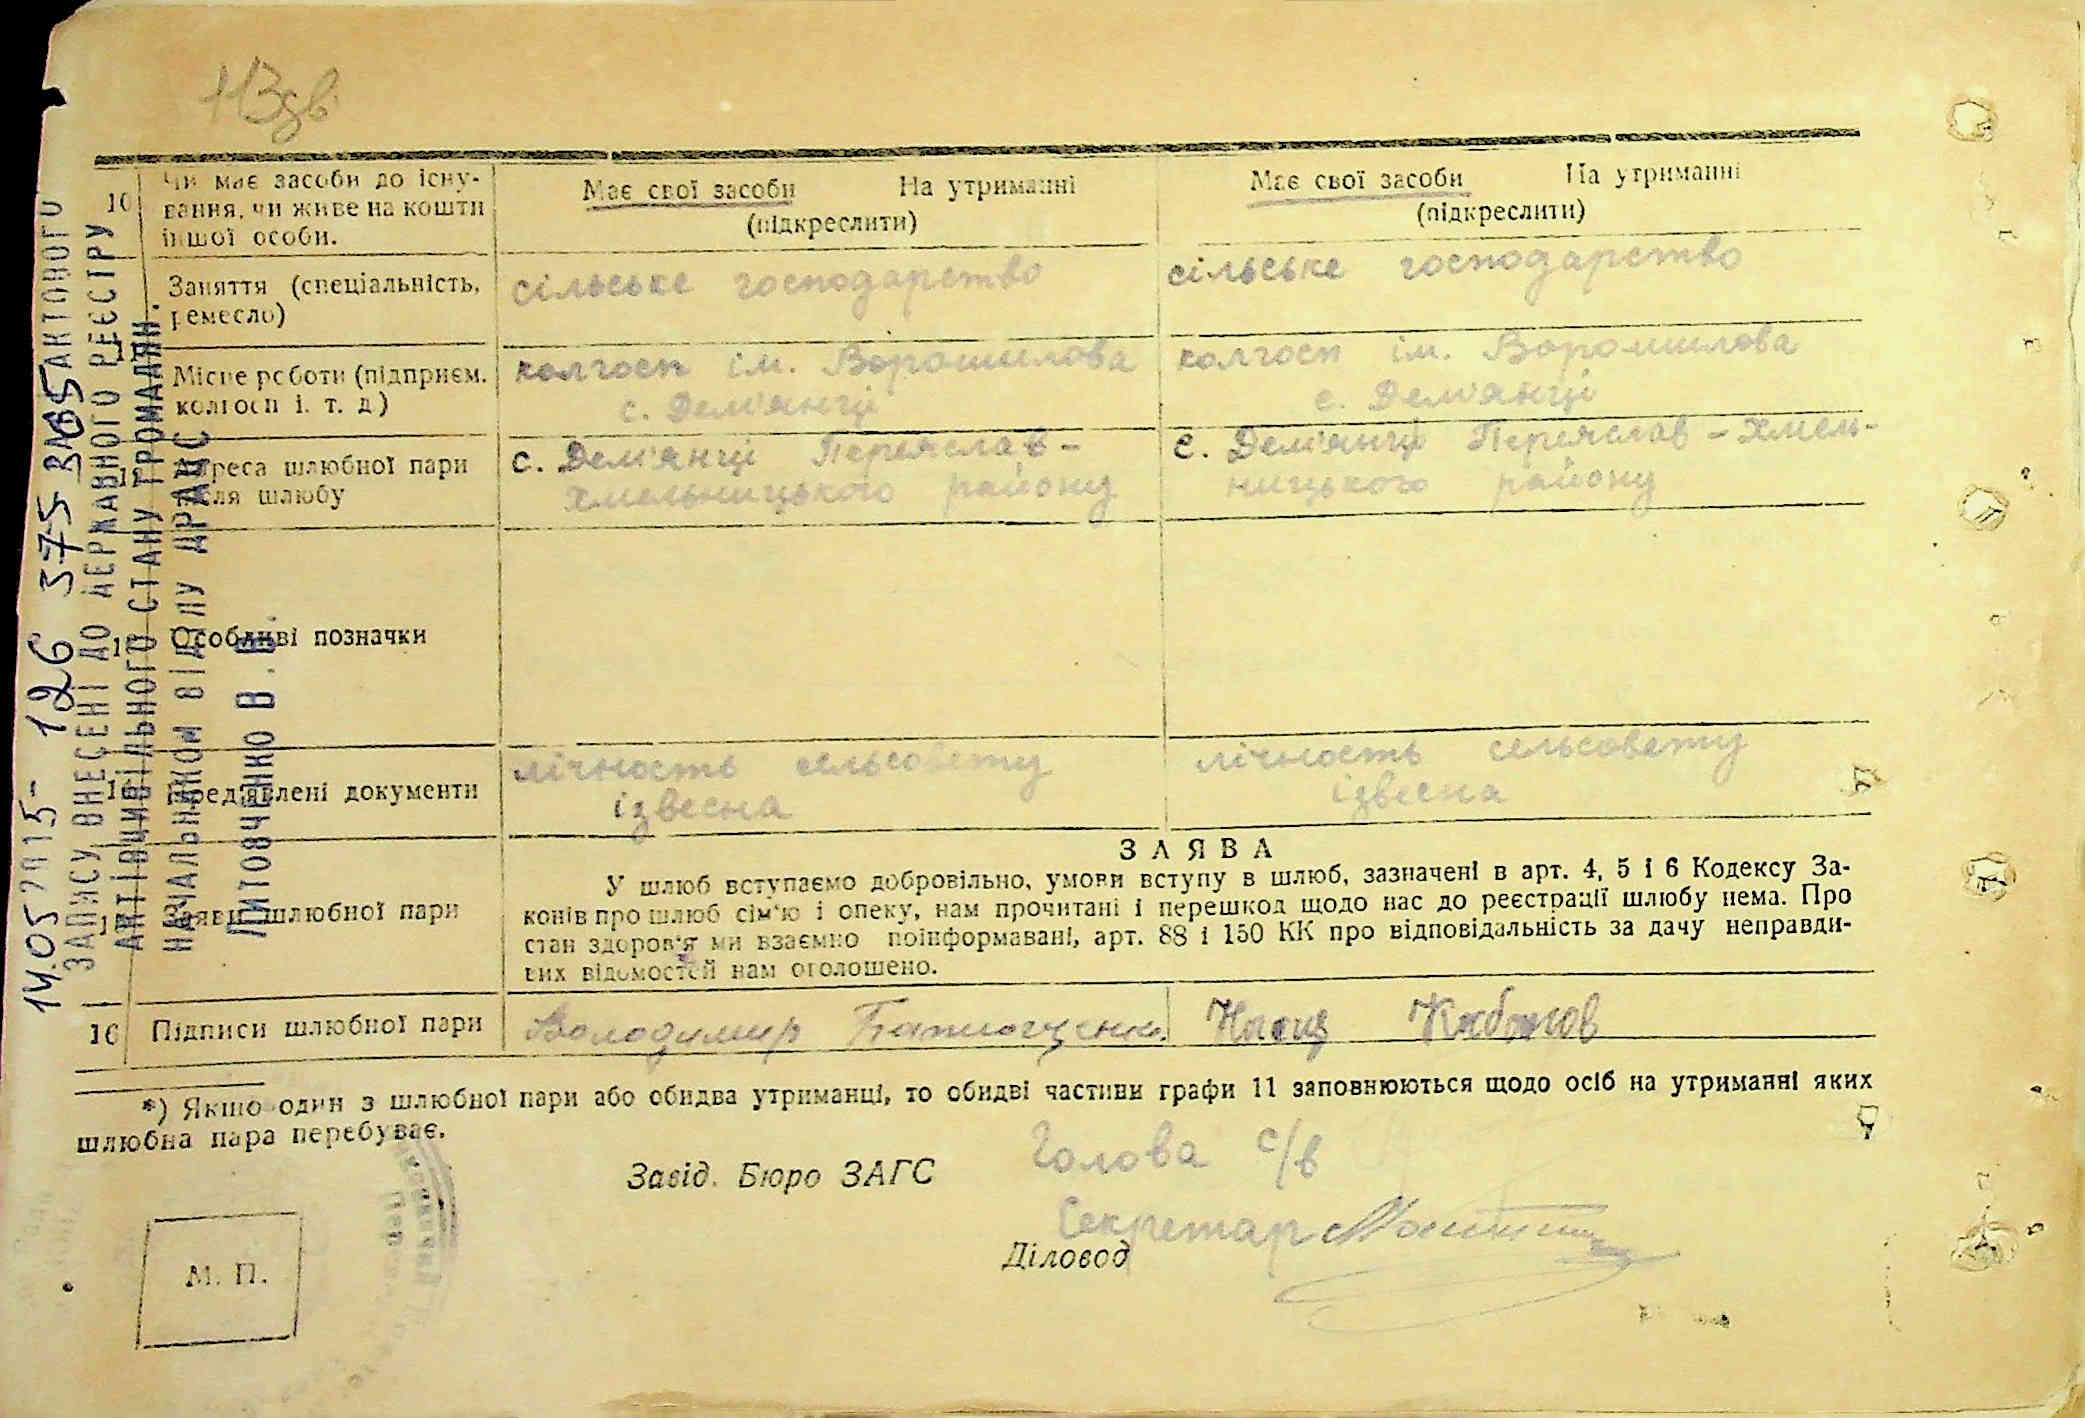 113зв
10 Чи має засоби до існу- Має свої засоби На утриманні Має свої засоби На утриманні
вання, чи живе на кошти (підкреслити) (підкреслити)
іншої особи.
Заняття (спеціальність, сільське господарство сільське господарство
ремесло)
Місце роботи (підприєм. колгосп ім. Ворошилова колгосп ім. Ворошилова
колгосп і. т. д) с. Дем'янці с. Дем'янці
Адреса шлюбної пари с. Дем'янці Переяслав- с. Дем'янці Переяслав-Хмель-
після шлюбу Хмельницького району ницького району
Особливі позначки
Пред'явлені документи лічность сельсовету лічность сельсовету
ізвесна ізвесна
ЗАЯВА
Заяви шлюбної пари У шлюб вступаємо добровільно, умови вступу в шлюб, зазначені в арт. 4, 5 і 6 Кодексу За-
конів про шлюб сім'ю і опеку, нам прочитані і перешкод щодо нас до реєстрації шлюбу нема. Про
стан здоров'я ми взаємно поінформавані, арт. 88 і 150 КК про відповідальність за дачу неправди-
вих відомостей нам оголошено.
16 Підписи шлюбної пари Володимир
*) Якщо один з шлюбної пари або обидва утриманці, то обидві частини графи 11 заповнюються щодо осіб на утриманні яких
шлюбна пара перебуває.
Завід. Бюро ЗАГС Голова с/в
Секретар
Діловод
М. П.
ЗАПИСУ ВНЕСЕНІ ДО ДЕРЖАВНОГО РЕЄСТРУ
АКТІВ ЦИВІЛЬНОГО СТАНУ ГРОМАДЯН.
НАЧАЛЬНИКОМ ВІДДІЛУ ДРАЦС